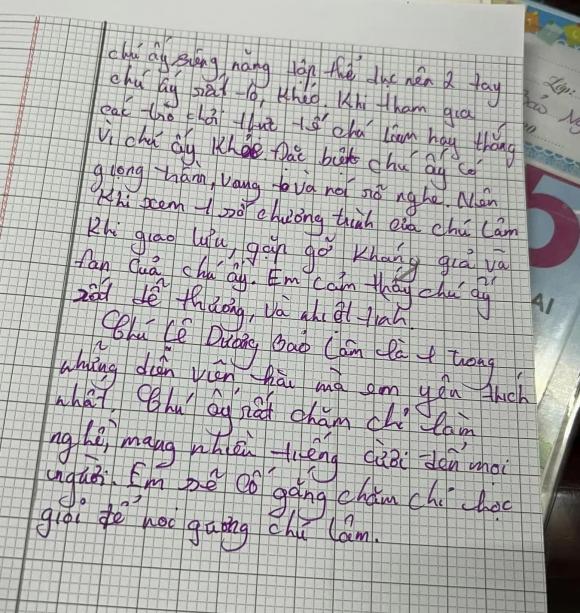 chú ấy siêng năng tập thể dục nên 2 tay
chú ấy rất to, khỏe. Khi tham gia
các trò chơi thực tế chú Lâm hay thắng
vì chú ấy khỏe. Đặc biệt chú ấy có
giọng trầm, vang to và nói rõ nghe. Nên
Khi xem 1 số chương trình của chú Lâm
Khi giao lưu, gặp gỡ khán giả và
fan của chú ấy. Em cảm thấy chú ấy
rất dễ thương, và nhiệt tình.
Chú Lê Dương Bảo Lâm là 1 trong
những diễn viên hài mà em yêu thích
nhất. Chú ấy rất chăm chỉ làm
nghề, mang nhiều tiếng cười đến mọi
người. Em sẽ cố gắng chăm chỉ học
giỏi để noi gương chú Lâm.
Lớp:
5
AI